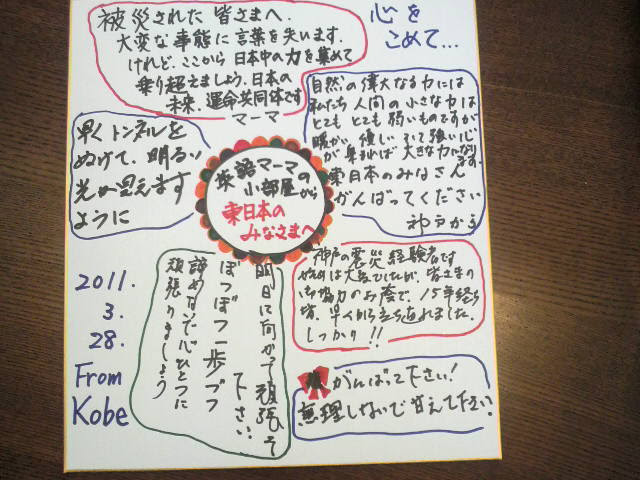 被災された 皆さまへ.
大変な事態に言葉を失います.
けれど、ここから 日本中の力を集めて
乗り超えましょう. 日本の
未来、運命共同体です
マーマ
心を
こめて...
自然の偉大なる力には
私たち 人間の小さな力は
とても とても 弱いものですが
暖かい 優しい そして 強い心
が 集まれば 大きな力になります.
東日本のみなさん
がんばってください
神戸から
早くトンネルを
ぬけて、明るい
光が見えます
ように
英語マーマの
小部屋から
東日本の
みなさまへ
神戸の震災経験者です
は大変でしたが、皆さまの
協力のお蔭で、15年経ち
早くから立ち直れました.
しっかり!!
明日に向かって頑張って
下さい.
ぼつぼつ一歩ブツ
諦めないで心ひとつに
頑張りましょう
がんばって下さい!
無理しないで 甘えて下さい.
2011.
3.
28.
From
Kobe